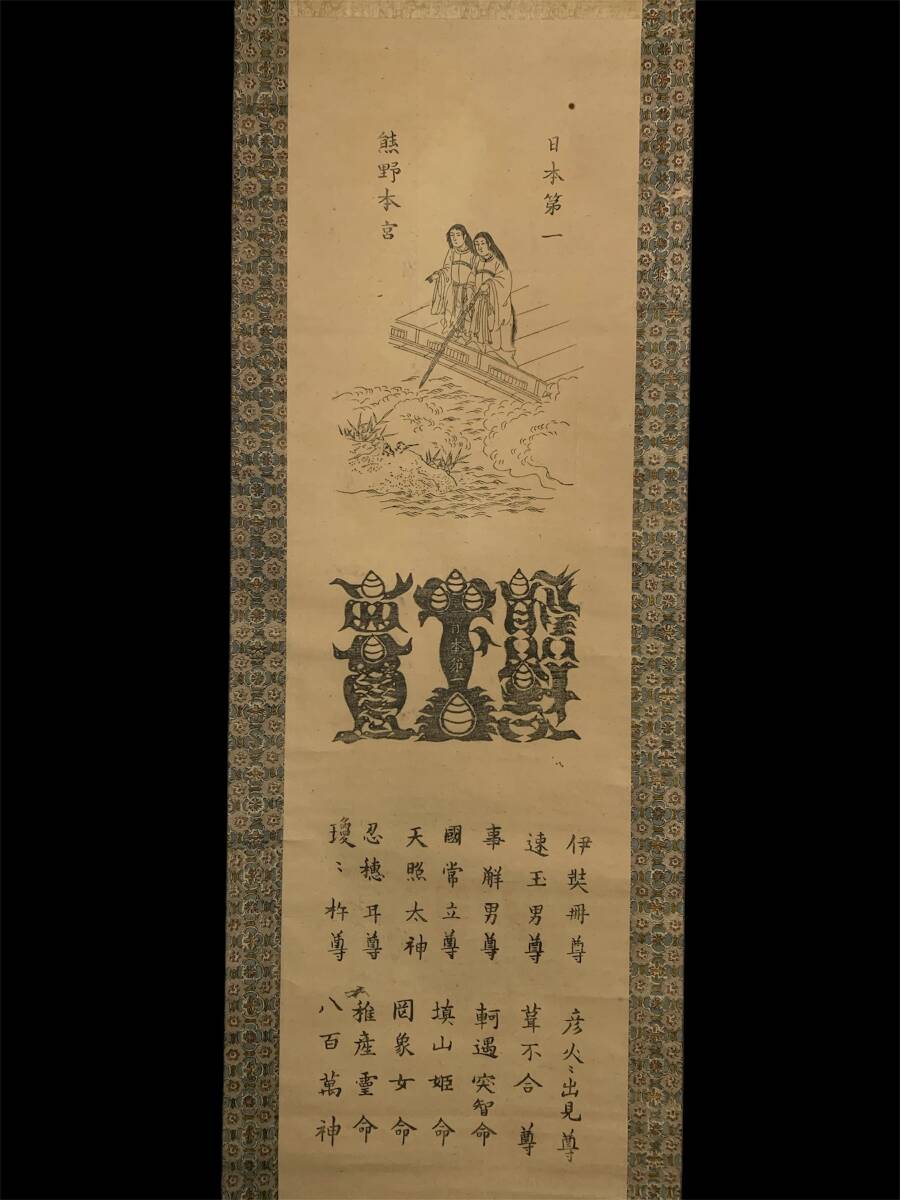 日本第一
熊野本宮
日本第
伊弉冊尊
速玉男尊
事解男尊
國常立尊
天照太神
忍穗耳尊
瓊〻杵尊
彦火〻出見尊
葺不合尊
軻遇突智命
埴山姫命
罔象女命
稚産霊命
八百萬神